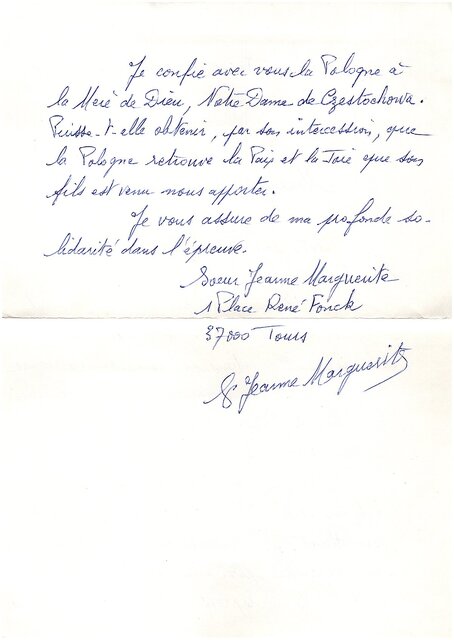 Je confie avec vous la Pologne à
la Mère de Dieu, Notre Dame de Częstochowa.
Puisse-t-elle obtenir, par son intercession, que
la Pologne retrouve la Paix et la Joie que son
fils est venu nous apporter.
Je vous assure de ma profonde so-
lidarité dans l'épreuve.
Soeur Jeanne Marguerite
1 Place René Fonck
37000 Tours
Sr Jeanne Marguerite